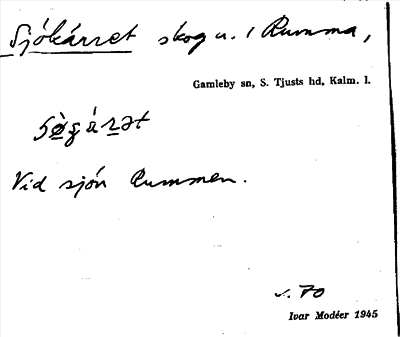 Sjökärret skog u. 1 Rumma,
Gamleby sn, S. Tjusts hd, Kalm. l.
Vid sjön Rummen.
s. 70
Ivar Modéer 1945